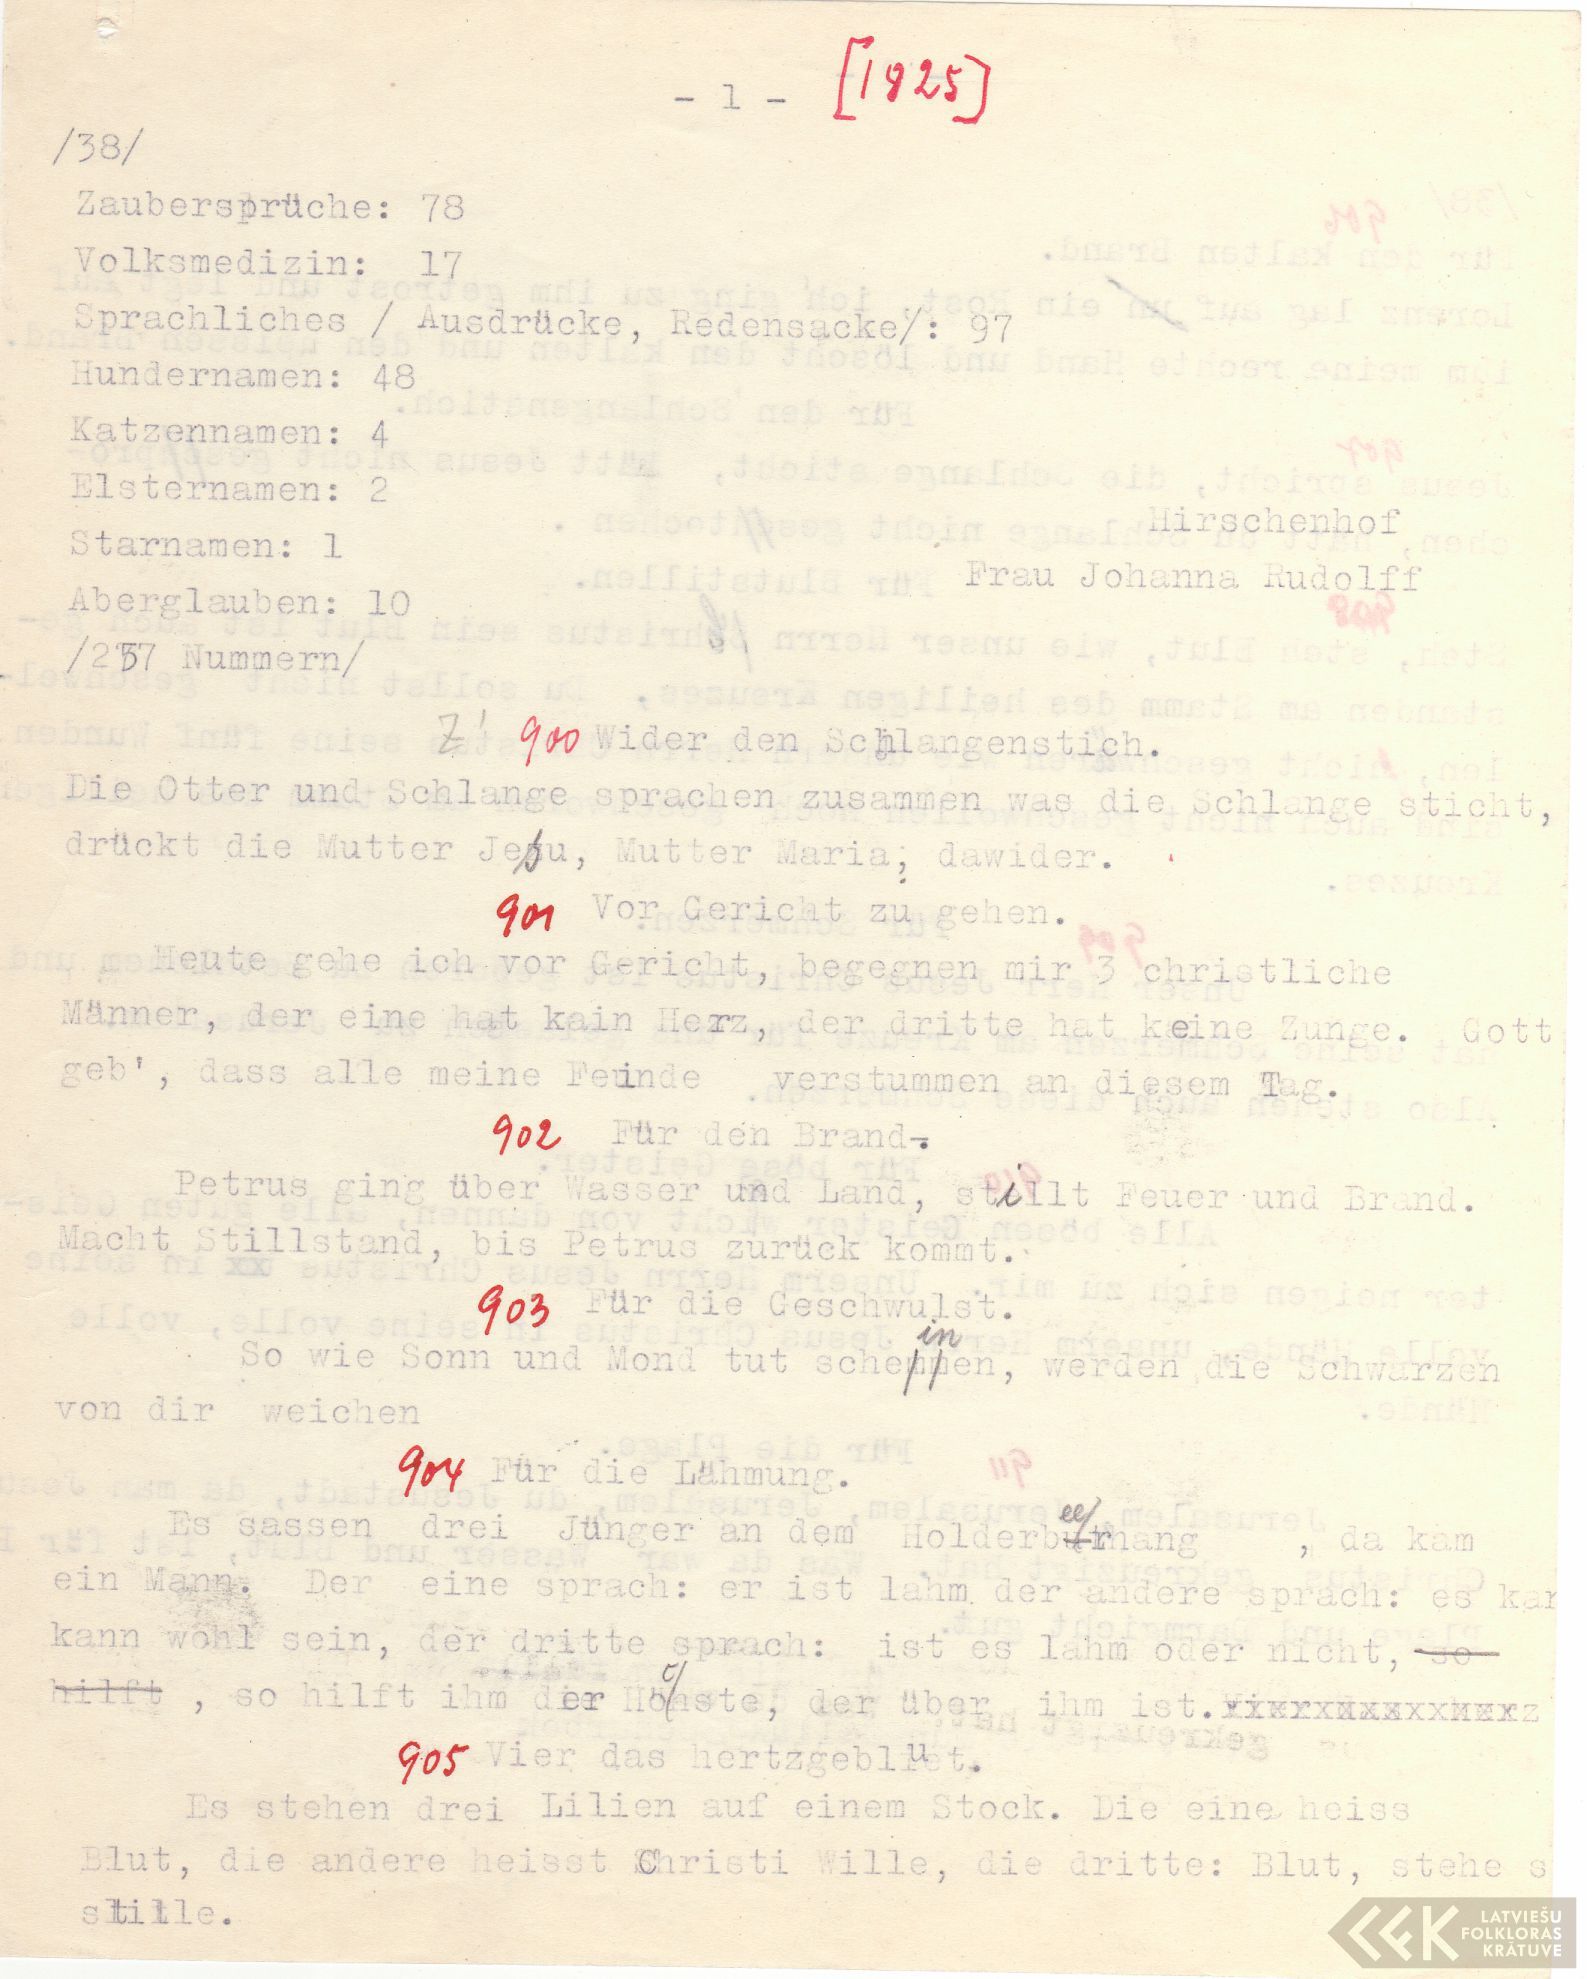 - 1 - [1825]
/38/
Zaubersprüche: 78
Volksmedizin: 17
Sprachliches / Ausdrücke, Redensacke/: 97
Hundernamen: 48
Katzennamen: 4
Elsternamen: 2
Starnamen: 1
Aberglauben: 10
/257 Nummern/
Hirschenhof
Frau Johanna Rudolff
Z! 900 Wider den Schlangenstich.
Die Otter und Schlange sprachen zusammen was die Schlange sticht,
drückt die Mutter Jesu, Mutter Maria; dawider.
901 Vor Gericht zu gehen.
Heute gehe ich vor Gericht, begegnen mir 3 christliche
Männer, der eine hat kain Herz, der dritte hat keine Zunge. Gott
geb', dass alle meine Feinde verstummen an diesem Tag.
902 Für den Brand.
Petrus ging über Wasser und Land, stillt Feuer und Brand.
Macht Stillstand, bis Petrus zurück kommt.
903 Für die Geschwulst.
So wie Sonn und Mond tut scheinen, werden die Schwarzen
von dir weichen
904 Für die Lähmung.
Es sassen drei Jünger an dem Holderbeerhang , da kam
ein Mann. Der eine sprach: er ist lahm der andere sprach: es kan
kann wohl sein, der dritte sprach: ist es lahm oder nicht, so
hilft , so hilft ihm der Höchste, der über ihm ist.
905 Vier das hertzgebluet.
Es stehen drei Lilien auf einem Stock. Die eine heiss
Blut, die andere heisst Christi Wille, die dritte: Blut, stehe s
stille.
LATVIEŠU
FOLKLORAS
KRĀTUVE